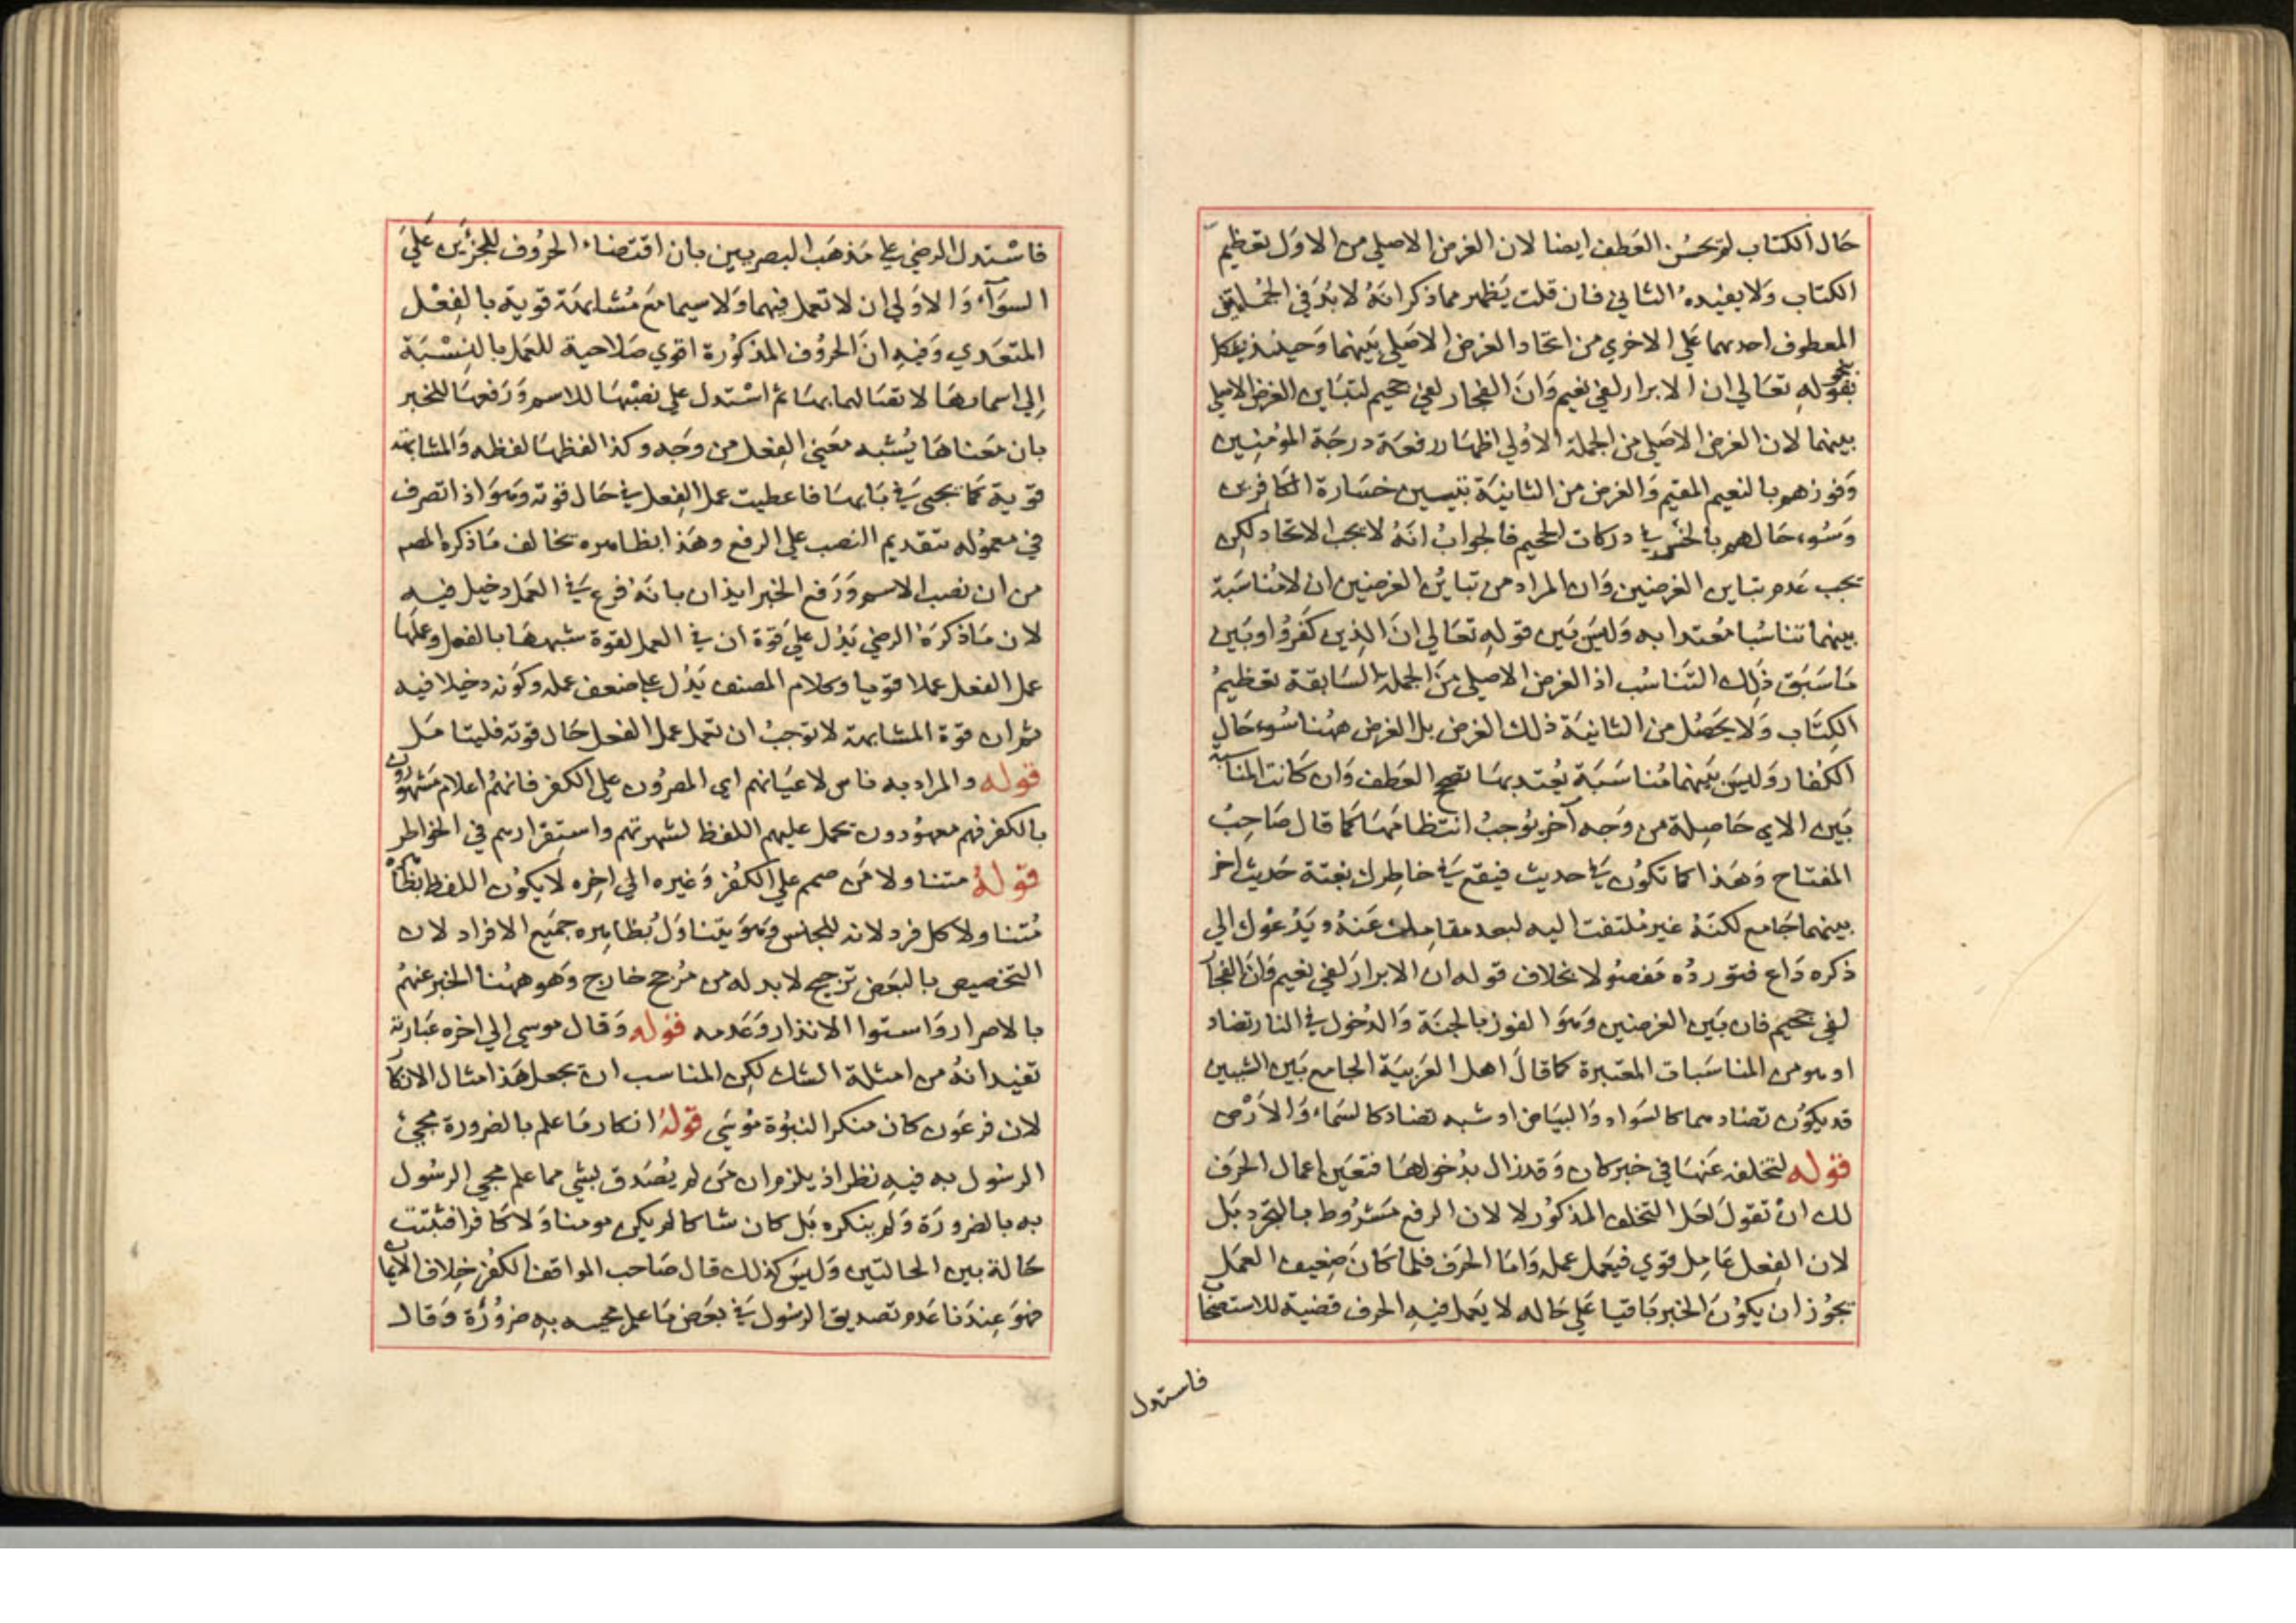 حَال الكتاب لم يحسُن العَطف ايضا لان الغرض الاصلي من الاوَل تعظيم
الكتاب وَلا يفيده الثاني فان قلت يَظهر مما ذكر انهُ لا بُدَ في الجُملتين
المعطوف احديهما عَلي الاخري من اتحاد الغرض الاصَلي بَينهما وَحينئذ يشكل
بنحو قوله تعَالي ان الابرار لفي نعيم وَانَ الفجار لفي جحيم لتبَاين الغرض الاصلي
بينهما لان الغرض الاصَلي من الجملة الاوُلي اظهَار رفعَة درجَة المؤمنِين
وَفوزهم بالنعيم المقيم وَالغرض من الثانيَة تبيين خسَارة الكَافرين
وَسُوء حَالهم بالخسر في دركات الجحيم فالجوابُ انهُ لا يجب الاتحاد لكن
يجب عَدم تباين الغرضين وَان المراد من تبايُن الغرضين ان لا مُناسَبَة
بينهما تناسُبا مُعتدا به وَليسَ بَين قوله تعَالي انَ الذِين كفَرُوا وبَين
مَا سَبَق ذَلِك التَناسُب اذ الغرض الاصلي منَ الجملة السَابقة تعظيمُ
الكِتاب وَلا يحَصُل من الثانيَة ذلك الغرض بل الغرض ههُنا سُوء حَال
الكفار وَليسَ بَينهما مُناسَبَة يُعتد بهَا تصحح العَطف وَان كَانت المناسبة
بَين الاي حَاصِلة من وَجه آخر يُوجبُ انتظامَهَا كمَا قال صَاحِبُ
المفتاح وَهَذا كما تكوُن في حديث فيقع في خاطِرك بغتة حَديث اخر
بينهما جَامع لكنهُ غير مُلتفت اليه لبعد مقامك عَنهُ ويَدعوُك الي
ذكره دَاع فتوردُه مَفصُولا بخلاف قوله ان الابرارَ لفي نعيم وَانَ الفجار
لفي جحيم فان بَين الغرضين وَهوَ الفوز بالجنة وَالدُخول في النار تضاد
اوهو من المناسَبات المعتبرة كما قالَ اهل العَربيَة الجامع بَين الشيئين
قد يكوُن تضادهما كالسَواد وَالبيَاض او شبه تضاد كالسَماء وَالاَرْض
قوله لتخلفه عَنهَا في خبر كان وَقد زال بدُخولهَا فتعَين اعمال الحَرف
لك انْ تقولَ لعَل التخلف المذكوُر لا لان الرفع مَشرُوط بالتجرد بَل
لان الفِعل عَامِل قوي فيعَمل عمله وَامَا الحَرف فلما كانَ ضعِيف العمَل
يجوُز ان يكوُنَ الخبر بَاقيا عَلي حَاله لا يَعمل فيهِ الحرف قضية للاستصحاب
فاستدل
فاسْتدل الرضي علي مَذهَب البصريين بان اقتضاء الحرُوف للجزئين عَلي
السوَآء وَالاوَلي ان لا تعمل فيهما وَلا سيما مَع مُشابهَة قوية بالفِعْل
المتعَدي وَفيهِ انَ الحرُوف المذكوُرة اقوي صَلاحية للعَمل بالنِسْبَة
اِلي اسمائهَا لاتصَالهَا بهَا ثم اسْتدل علي نصْبهَا للاسم وَرَفعهَا للخبر
بان مَعناهَا يُشبه مَعَني الفِعل من وَجه وكذا لفظهَا لفظه وَالمشابهة
قوية كمَا يجي في بَابهَا فاعطيت عمل الفِعل في حَال قوته وَهوَ اذا تصرف
في معموُله بتقديم النصب علي الرفع وهَذا بظاهره يخالف مَا ذكره المص
من ان نصب الاسم وَرَفع الخبر ايذان بانَهُ فرع في العَمل دخيل فيه
لان مَا ذكرَهُ الرضي يَدُل عَلي قوة ان في العمل لقوة شبههَا بالفعل وعملهَا
عمل الفعل عملا قويا وكلام المصنف يَدُل علي ضعف عمله وكونه دخيلا فيه
ثم ان قوة المشابهة لا توجبُ ان تعمل عمل الفعل حَال قوته فليتامَل
قوله والمراد به ناس لاعيَانهم اي المصرُون علي الكفر فانهُم اعلام مَشهُورون
بالكفر فهم معهوُدون يحمل عليهم اللفظ لشهرتهم واستقرارهم في الخواطر
قولهُ متناولا مَن صمم علي الكفُر وَغيره الي اخِره لا يكوُن اللفظ بظاهره
مُتناولا كل فرد لانه للجنس وَهوَ يتناوَلُ بُظاهِره جمَيع الافراد لان
التخصيص بالبَعض ترجيح لا بد له من مُرجح خارج وَهو ههُنا الخبر عنهُم
بالاصرار وَاستوا الانذار وَعَدمه قوله وَقال موسي الي اخره عبَارته
تفيد انهُ من امثلة الشك لكِن المناسب ان يجعل هَذا مثال الانكار
لان فرعَون كان منكرا لنبوُة موُسَي قولهُ انكار مَا علم بالضرورة مجئ
الرسُول به فيهِ نظر اذ يلزم ان مَن لم يُصَدق بشي مما علم مجي الرسُول
به بالضرورَة وَلم ينكره بَل كان شاكا لم يكن مومنا وَلا كَافرا فثبتت
حَالة بين الحالتَين وَليسَ كذلك قال صَاحب المواقف الكفُر خِلاف الايمان
فهوَ عِندَنا عَدم تصديق الرسُول في بعَض مَا علم مجيه بهِ ضروُرَة وَقال